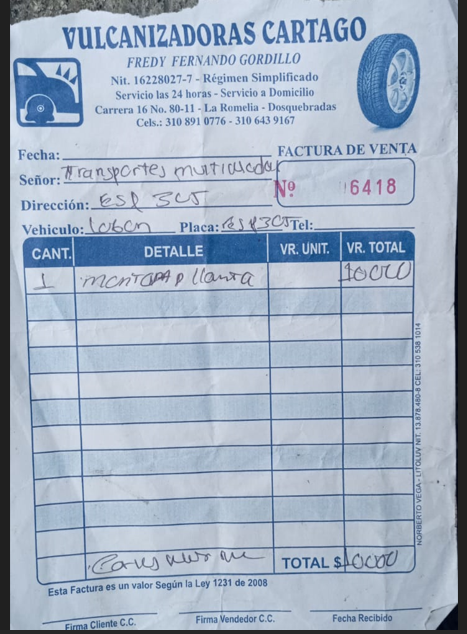 VULCANIZADORAS CARTAGO
FREDY FERNANDO GORDILLO
Nit. 16228027-7 - Régimen Simplificado
Servicio las 24 horas - Servicio a Domicilio
Carrera 16 No. 80-11 - La Romelia - Dosquebradas
Cels.: 310 891 0776 - 310 643 9167
Fecha:
FACTURA DE VENTA
Señor: Transportes
Nº 6418
Dirección:
Vehiculo: Placa: Tel:
CANT. DETALLE VR. UNIT. VR. TOTAL
1 llanta 10000
TOTAL $ 10000
Esta Factura es un valor Según la Ley 1231 de 2008
Firma Cliente C.C. Firma Vendedor C.C. Fecha Recibido
NORBERTO VEGA - LITOLUV NIT. 13.878.480-8 CEL: 310 538 1014